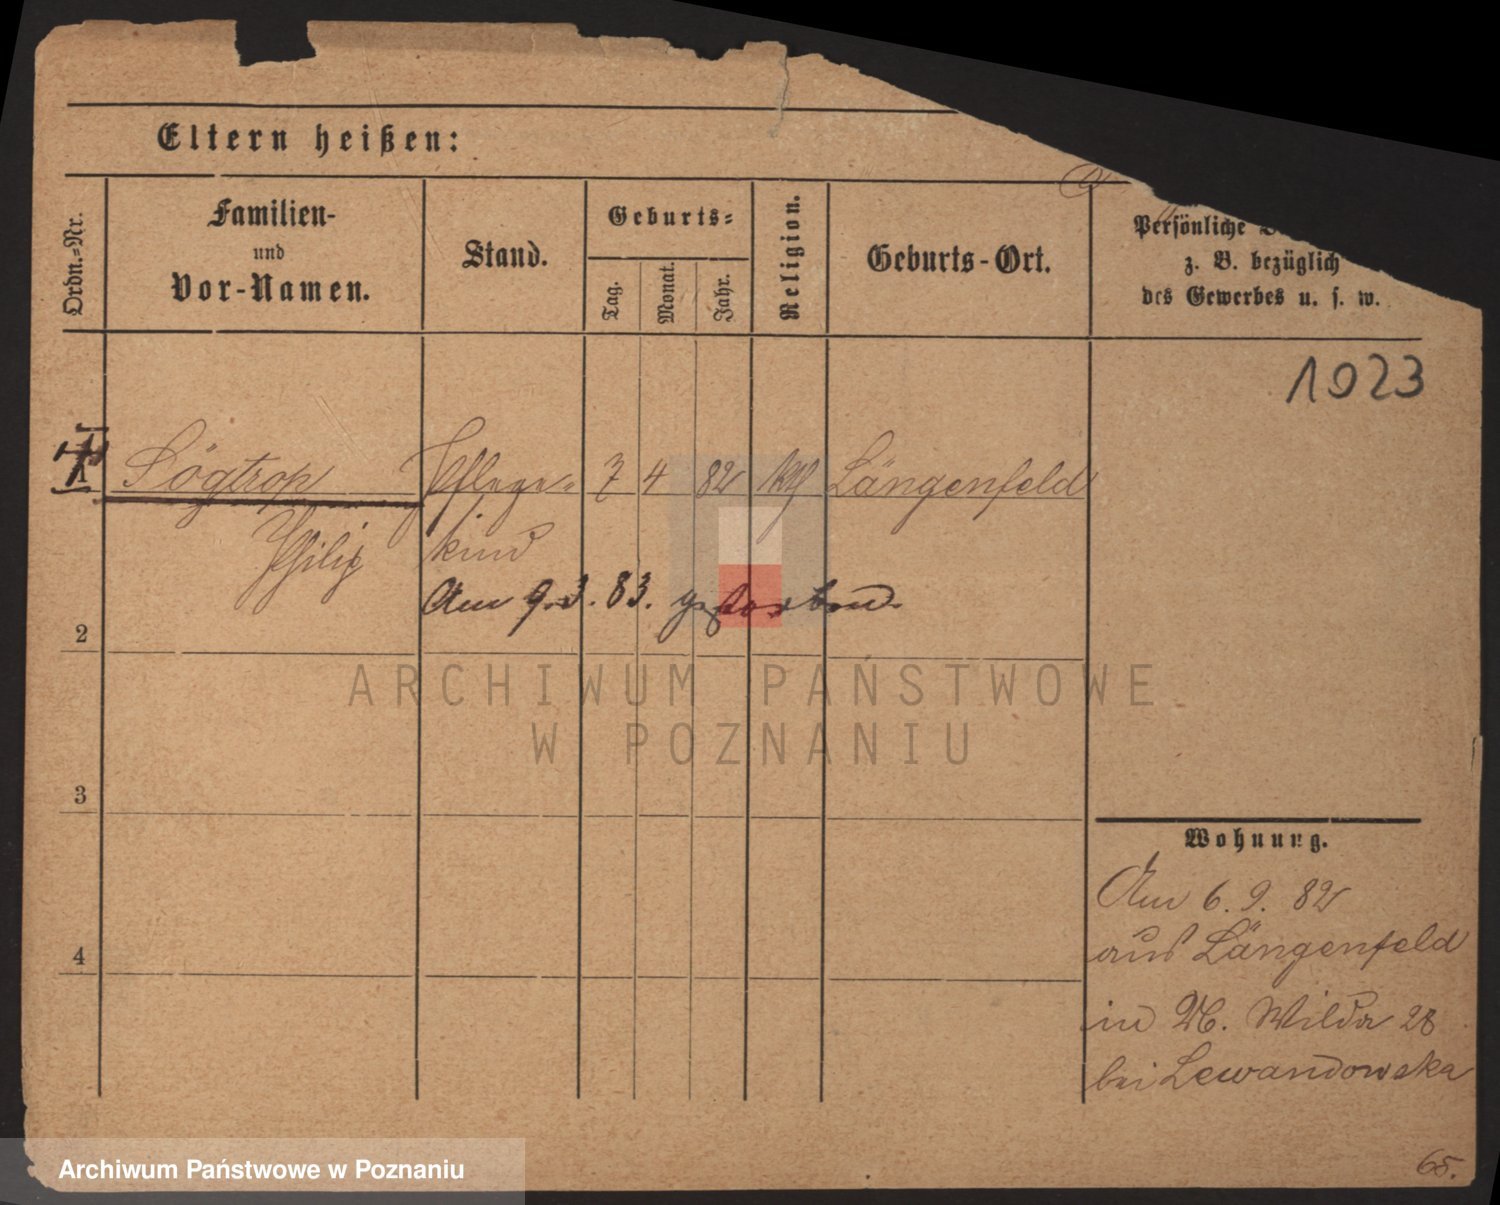 Eltern heißen:
Ordn.-Nr.
Familien-
und
Vor-Namen.
Stand.
Geburts-
Tag.
Monat.
Jahr.
Religion.
Geburts-Ort.
Persönliche
z. B. bezüglich
des Gewerbes u. s. w.
1023
1 Sögtrop Pflege- 7 4 82 kth Längenfeld
Philip kind
Am 9.3.83. gestorben.
2
3
4
Wohnung.
Am 6. 9. 82
aus Längenfeld
in N. Wilda 28
bei Lewandowska
65.
ARCHIWUM PAŃSTWOWE
W POZNANIU
Archiwum Państwowe w Poznaniu